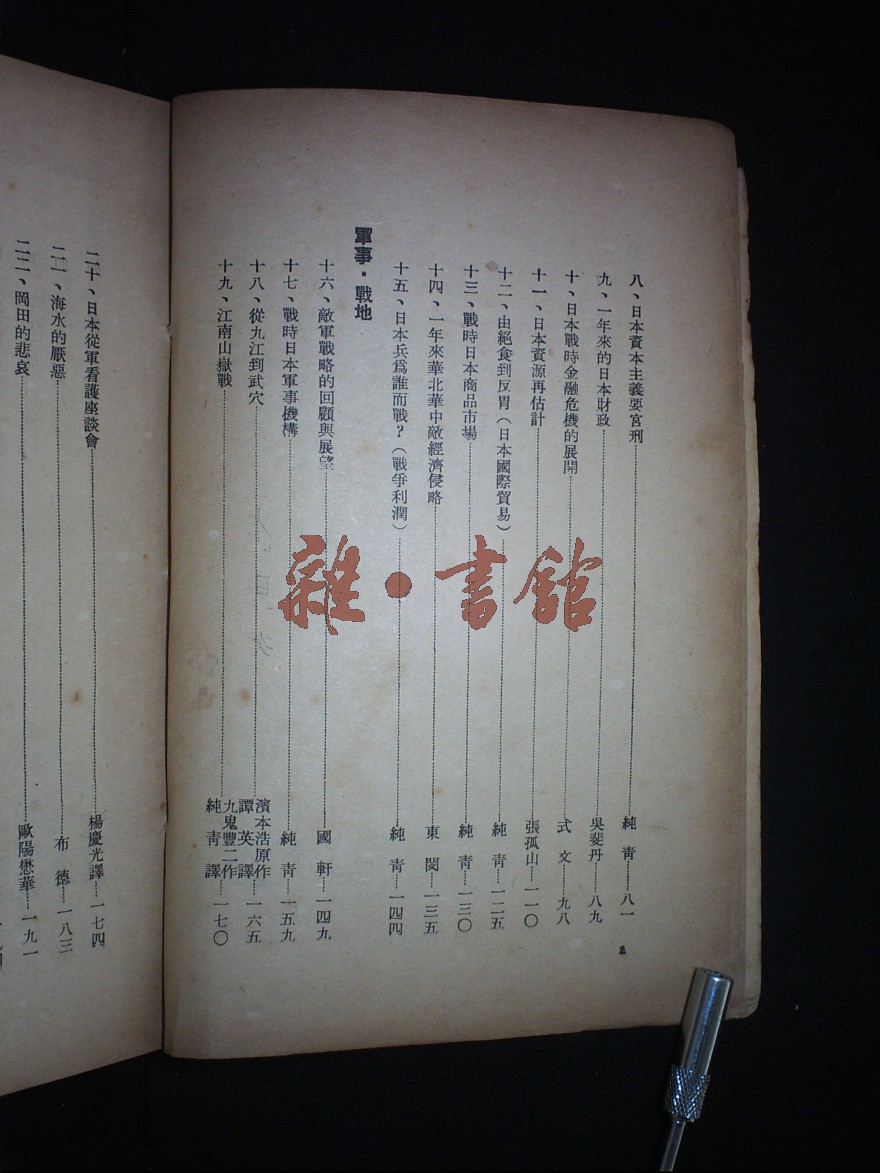 八、日本資本主義要宮刑……純青……八一
九、一年來的日本財政……吳斐丹……八九
十、日本戰時金融危機的展開……式文……九八
十一、日本資源再估計……張孤山……一一〇
十二、由絕食到反胃(日本國際貿易)……純青……一二五
十三、戰時日本商品市場……純青……一三〇
十四、一年來華北華中敵經濟侵略……東閔……一三五
十五、日本兵爲誰而戰?(戰爭利潤)……純青……一四四
軍事·戰地
十六、敵軍戰略的回顧與展望……國軒……一四九
十七、戰時日本軍事機構……純青……一五九
十八、從九江到武穴……濱本浩原作 譚英譯……一六五
十九、江南山嶽戰……九鬼豐二作 純青譯……一七〇
2
二十、日本從軍看護座談會……楊慶光譯……一七四
二一、海水的厭惡……布德……一八三
二二、岡田的悲哀……歐陽懋華……一九一
雜·書館